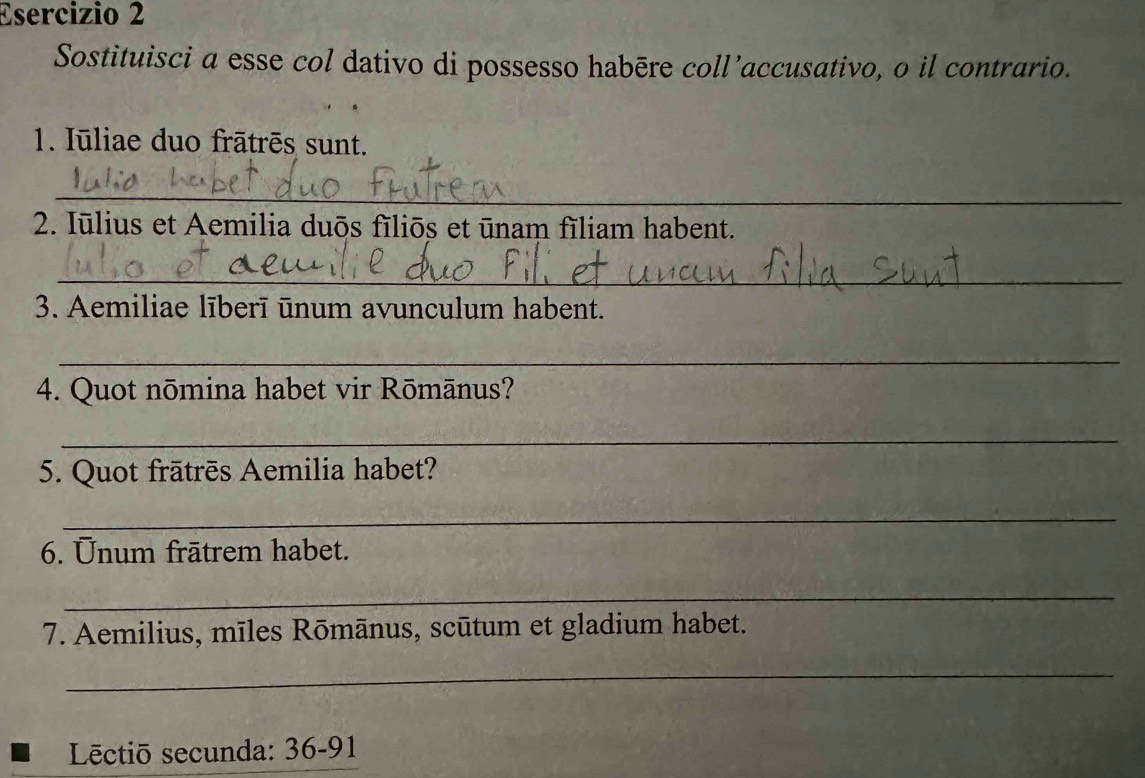 Esercizio 2
Sostituisci a esse col dativo di possesso habēre coll'accusativo, o il contrario.
1. Iūliae duo frātrēs sunt.
Iulia habet duo fratrem
2. Iūlius et Aemilia duōs fīliōs et ūnam fīliam habent.
Iulio et aemilie duo fili et unam filia sunt
3. Aemiliae līberī ūnum avunculum habent.
4. Quot nōmina habet vir Rōmānus?
5. Quot frātrēs Aemilia habet?
6. Ūnum frātrem habet.
7. Aemilius, mīles Rōmānus, scūtum et gladium habet.
■ Lēctiō secunda: 36-91